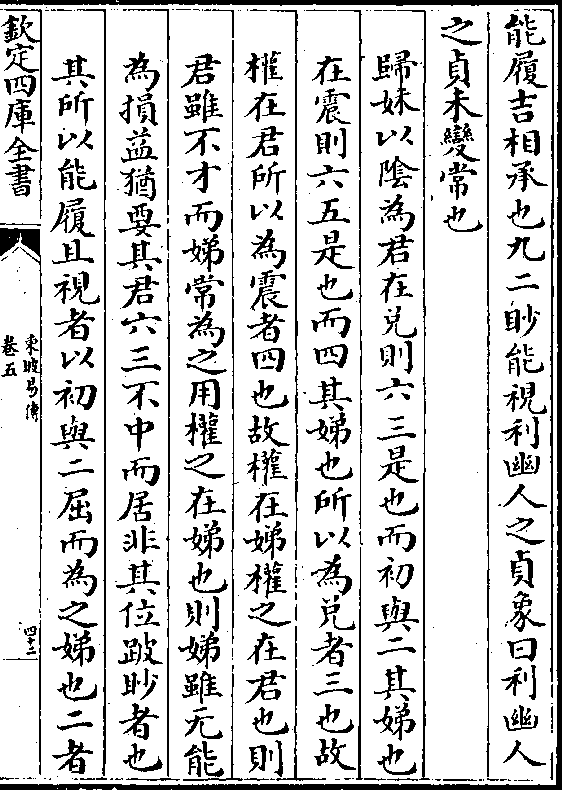 能履吉相承也九二眇能視利幽人之貞象曰利幽人
之貞未變常也
歸妹以陰為君在兑則六三是也而初與二其娣也
在震則六五是也而四其娣也所以為兑者三也故
權在君所以為震者四也故權在娣權之在君也則
君雖不才而娣常為之用權之在娣也則娣雖无能
為損益猶要其君六三不中而居非其位跛眇者也
其所以能履且視者以初與二屈而為之娣也二者
欽定四庫全書
東坡易傳
卷五
四十二